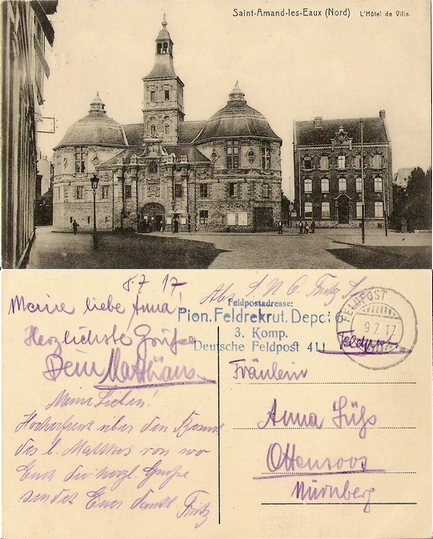 Saint-Amand-les-Eaux (Nord) L'Hôtel de Ville
8.7.17.
Meine liebe Anna!
Herzlichste Grüße
Dein Matthäus
Meine Lieben!
Hocherfreut über den Besuch
des l. Matthäus von wo
Euch die herzl. Grüße
sendet Euer dankb. Fritz
Abs. Fritz
Feldpostadresse:
Pion. Feldrekrut. Depot 6
3. Komp.
Deutsche Feldpost 411
FELDPOST
9.7.17
Feldpost
Fräulein
Anna Süß
Ottensoos
Nürnberg